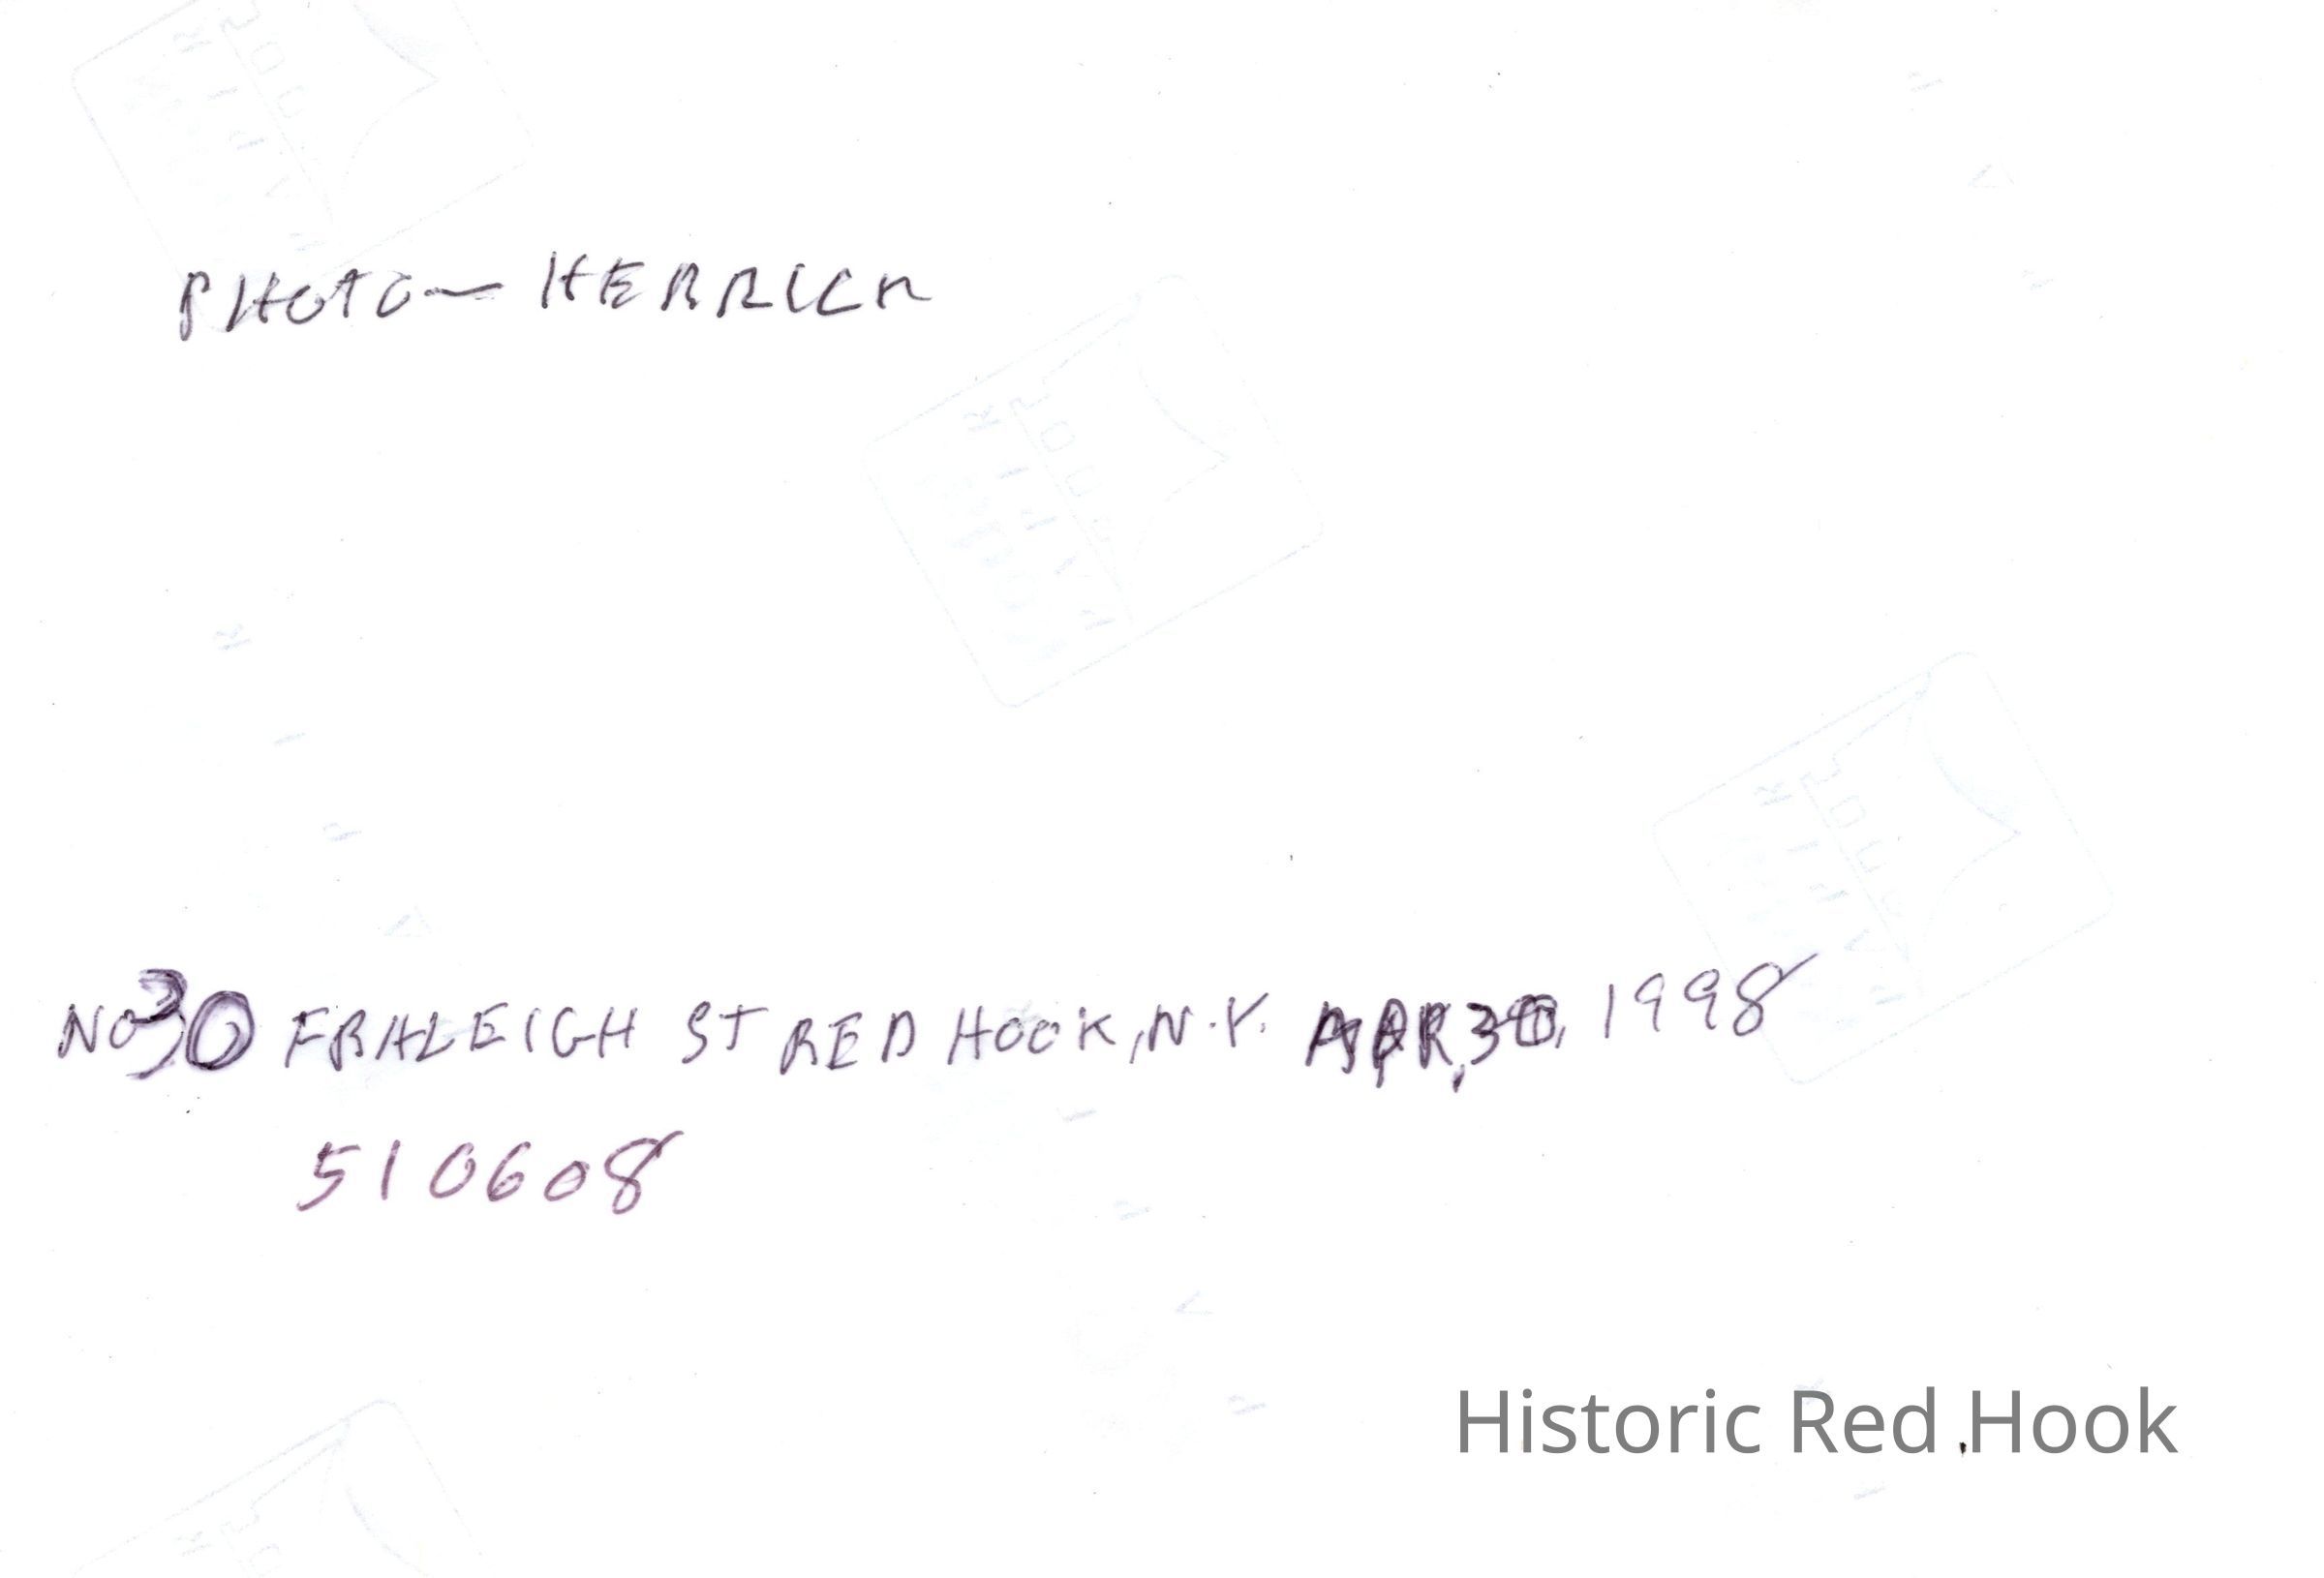 PHOTO — HERRICK
NO 30 FRALEIGH ST RED HOOK, N.Y. APR, 30, 1998
510608
Historic Red Hook